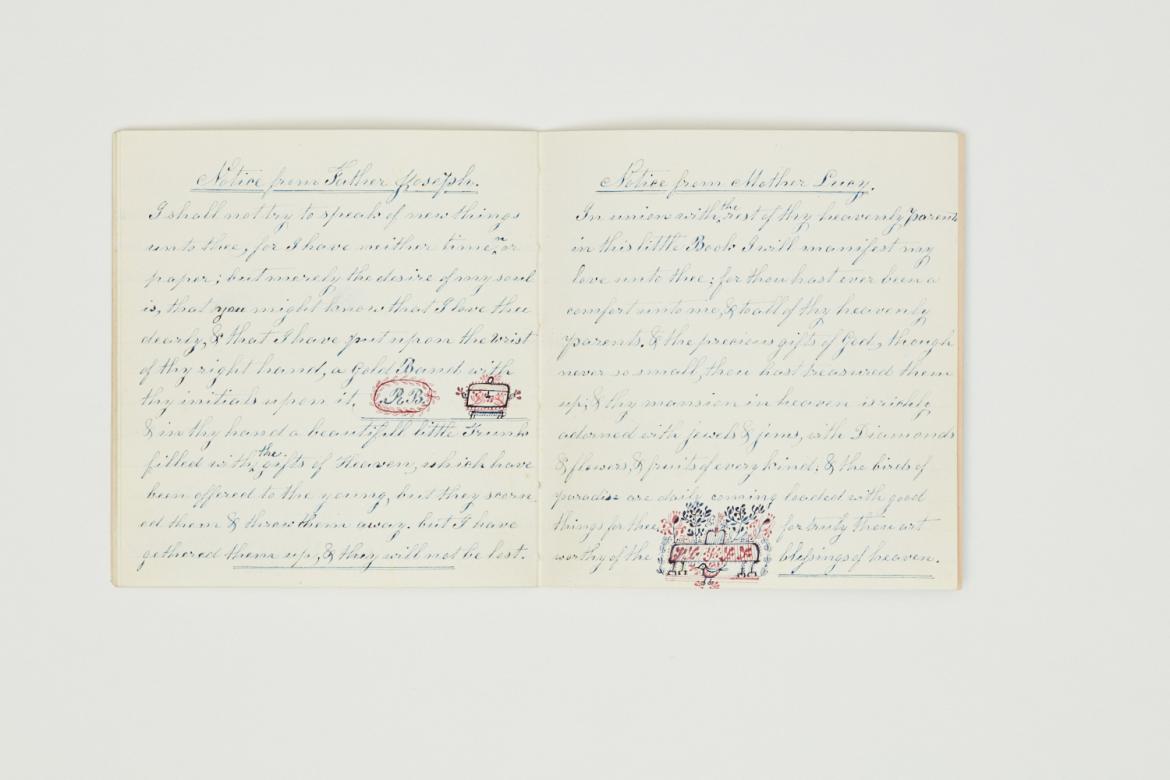 Notice from Father Joseph.
I shall not try to speak of new things
unto thee, for I have neither time, or
paper; but merely the desire of my soul
is, that you might know that I love thee
dearly, & that I have put upon the wrist
of thy right hand, a Gold Band with
thy initials upon it. R.B.
& in thy hand a beautifull little Trunk
filled with the gifts of Heaven, which have
been offered to the young, but they scorn
ed them & throw them away. but I have
gethered them up, & they will not be lost.
Notice from Mother Lucy.
In union with the rest of thy heavenly parents
in this little Book I will manifest my
love unto thee; for thou hast ever been a
comfort unto me, & to all of thy heavenly
parents. & the precious gifts of God, though
never so small, thou hast treasured them
up; & thy mansion in heaven is richly
adorned with jewels & jems, with Diamonds
& flowers, & fruits of every kind: & the birds of
paradise are daily coming loaded with good
things for thee for truly thou art
worthy of the blessings of heaven.